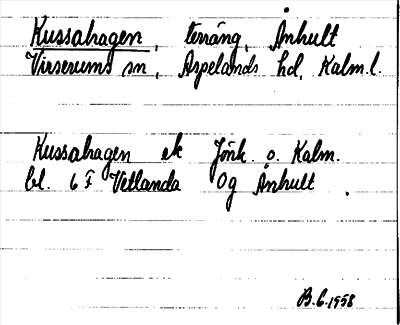 Kussahagen, terräng, Ånhult
Virserums sn, Aspelands hd, Kalm.l.
Kussahagen ek Jönk. o. Kalm.
bl. 6 f Vetlanda Og Ånhult.
B.C. 1958